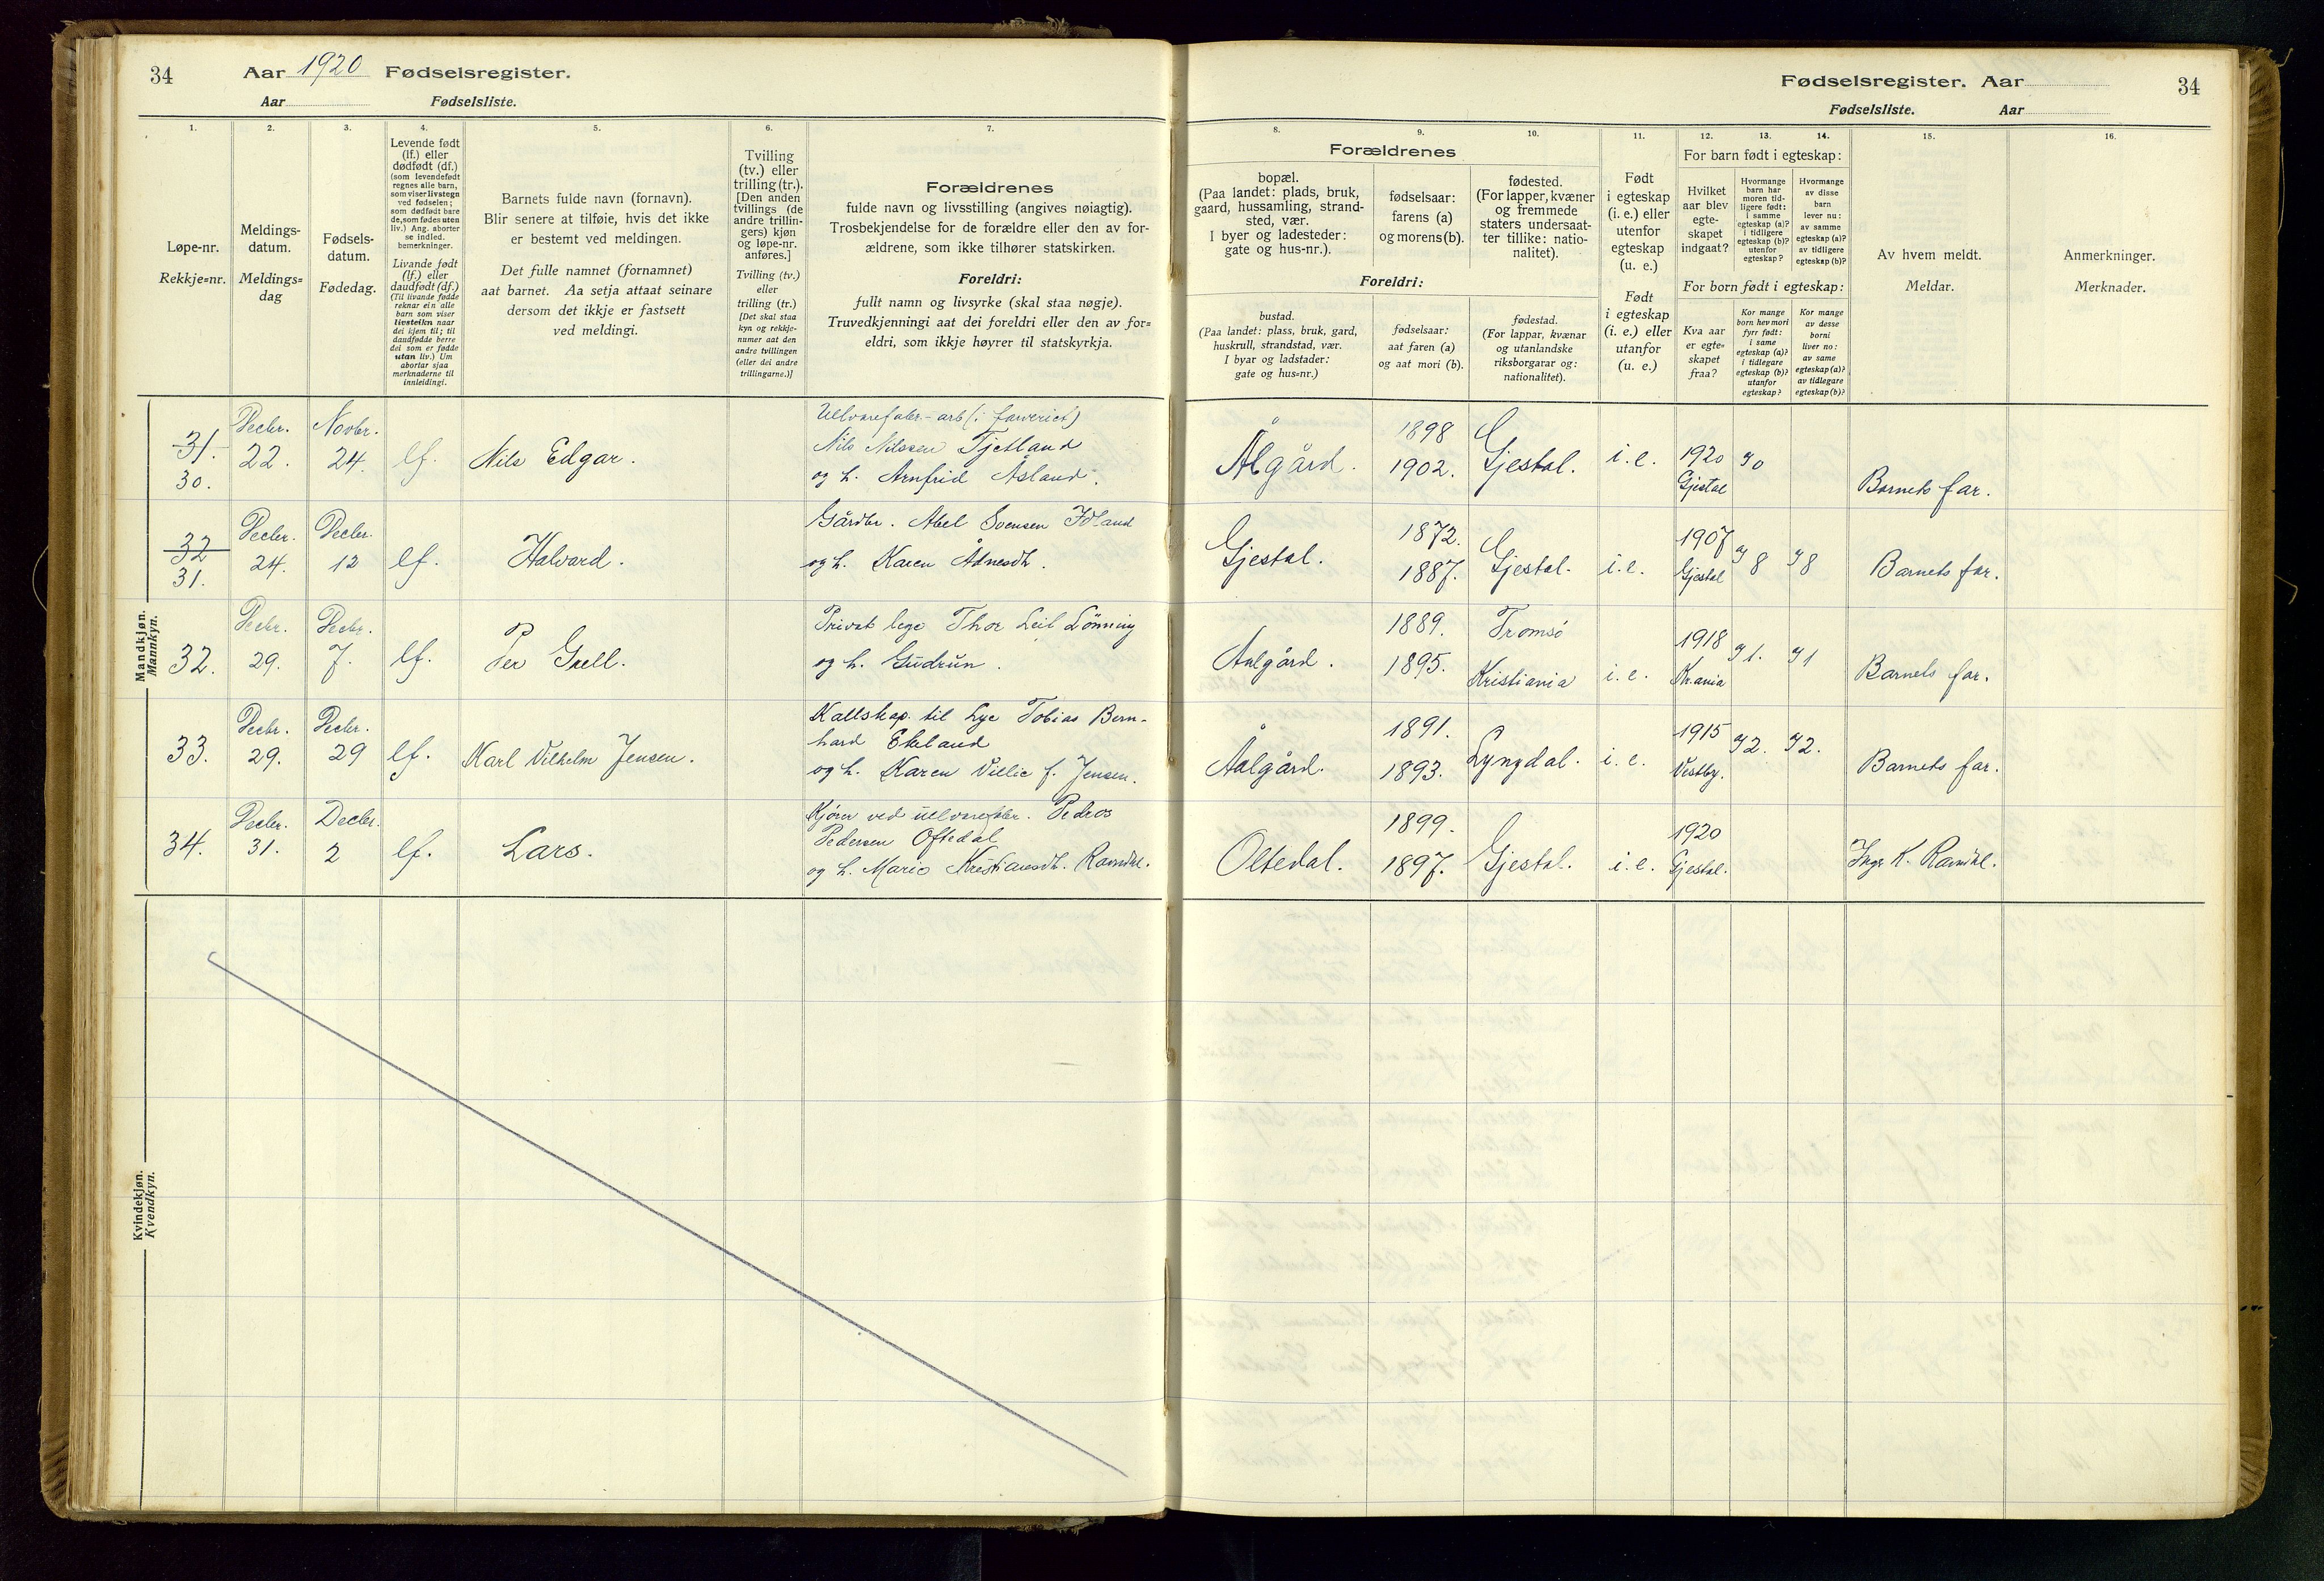 34 Aar 1920 Fødselsregister.
Aar Fødselsliste.
Fødselsregister. Aar 34
Fødselsliste. Aar
1. 2. 3. 4. 5. 6. 7. 8. 9. 10. 11. 12. 13. 14. 15. 16.
Løpe-nr.
Rekkje=nr.
Meldings-
datum.
Meldings=
dag
Fødsels-
datum.
Fødedag.
Levende født
(lf.) eller
dødfødt (df.)
(som levendefødt
regnes alle barn,
som viser livstegn
ved fødselen;
som dødfødt bare
de, som fødes uten
liv.) Ang. aborter
se indled.
bemerkninger.
Livande født
(lf.) eller
daudfødt (df.)
(Til livande fødde
reknar ein alle
barn som viser
livsteikn naar
dei kjem til; til
daudfødde berre
dei som er fødde
utan liv.) Um
abortar sjaa
merknaderne til
innleidingi.
Barnets fulde navn (fornavn).
Blir senere at tilføie, hvis det ikke
er bestemt ved meldingen.
Det fulle namnet (fornamnet)
aat barnet. Aa setja attaat seinare
dersom det ikkje er fastsett
ved meldingi.
Tvilling
(tv.) eller
trilling (tr.).
[Den anden
tvillings (de
andre trillin-
gers) kjøn
og løpe-nr.
anføres.]
Tvilling (tv.)
eller
trilling (tr.)
[Det skal staa
kyn og rekkje-
numer aat den
andre tvillingen
(eller dei andre
trillingarne.)]
Forældrenes
fulde navn og livsstilling (angives nøiagtig).
Trosbekjendelse for de forældre eller den av for-
ældrene, som ikke tilhører statskirken.
Foreldri:
fullt namn og livsyrke (skal staa nøgje).
Truvedkjenningi aat dei foreldri eller den av for=
eldri, som ikkje høyrer til statskyrkja.
Forældrenes
bopæl.
(Paa landet: plads, bruk,
gaard, hussamling, strand-
sted, vær.
I byer og ladesteder:
gate og hus-nr.).
fødselsaar:
farens (a)
og morens (b).
fødested.
(For lapper, kvæner
og fremmede
staters undersaat-
ter tillike: natio-
nalitet).
Foreldri:
bustad.
(Paa landet: plass, bruk, gard,
huskrull, strandstad, vær.
I byar og ladstader:
gate og hus=nr.)
fødselsaar:
aat faren (a)
og aat mori (b).
fødestad.
(For lappar, kvænar
og utanlandske
riksborgarar og:
nationalitet).
Født
i egteskap
(i. e.) eller
utenfor
egteskap
(u. e.)
Født
i egteskap
(i. e.) eller
utanfor
(u. e.)
For barn født i egteskap:
Hvilket
aar blev
egte-
skapet
indgaat?
Hvormange
barn har
moren tid-
ligere født:
i samme
egteskap (a)?
i tidligere
egteskap (b)?
utenfor
egteskap?
Hvormange
av disse
barn
lever nu:
av samme
egteskap (a)?
av tidligere
egteskap (b)?
For born født i egteskap:
Kva aar
er egte=
skapet
fraa?
Kor mange
born hev mori
fyrr født:
i same
egteskap (a)?
i tidlegare
egteskap (b)?
utanfor
egteskap?
Kor mange
av desse
borni
liver no:
av same
egteskap (a)?
av tidlegare
egteskap (b)?
Av hvem meldt.
Meldar.
Anmerkninger.
Merknader.
Mandkjøn.
Mannkyn.
31.
30.
Decbr.
22.
Novbr.
24.
lf.
Nils Edgar.
Ullvarefabr.-arb. (i farveriet)
Nils Nilssen Tjetland
og h. Arnfrid Åsland.
Ålgård.
1898
1902.
Gjestal.
i. e.
1920
Gjestal
Barnets far.
32
31.
Decbr.
24.
Decbr.
12
lf.
Halvard.
Gårdbr. Abel Svensen Idland
og h. Karen Ådnesdt.
Gjestal.
1872.
1887.
Gjestal.
i. e.
1907
Gjestal
8
8
Barnets far.
32.
Decbr.
29.
Decbr.
7.
lf.
Per Grell.
Privat lege Thor Leif Lönning
og h. Gudrun.
Aalgård.
1889.
1895.
Tromsö
Kristiania
i. e.
1918
Kr.ania
1.
1
Barnets far.
33.
Decbr.
29.
Decbr.
29
lf.
Karl Vilhelm Jensen.
Kallskap. til Lye Tobias Bern-
hard Ekeland
og h. Karen Villie f. Jensen.
Ålgård.
1891.
1893.
Lyngdal.
i. e.
1915
Vestby.
2.
2.
Barnets far.
34.
Decbr.
31.
Decbr.
2
lf.
Lars.
Kjörer ved ullvarefabr. Pedros
Pedersen Oftedal
og h. Marie Kristiansdt. Ravndal.
Oltedal.
1899.
1897.
Gjestal.
i. e.
1920
Gjestal.
K. Ravndal.
Kvindekjøn.
Kvendkyn.